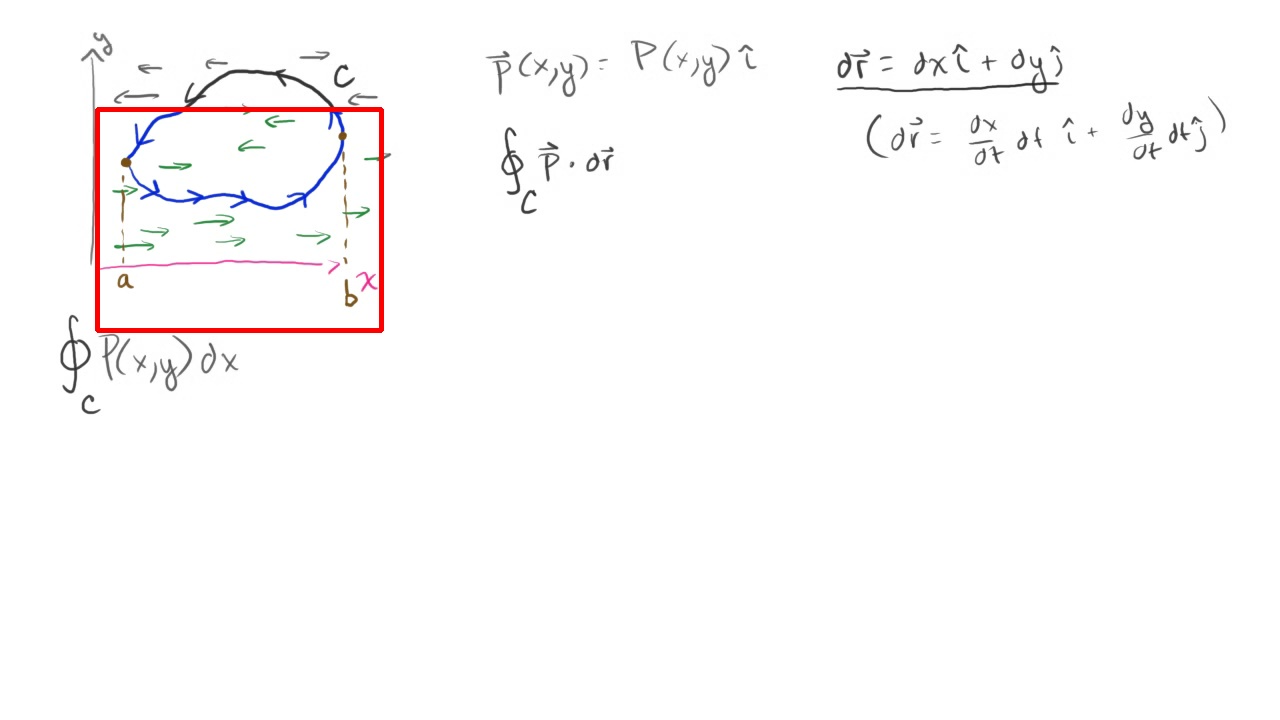 y
C
a
b
x
∮_C P(x,y) dx
p⃗(x,y) = P(x,y) î
∮_C p⃗ · dr⃗
dr⃗ = dx î + dy ĵ
(dr⃗ = dx/dt dt î + dy/dt dt ĵ)